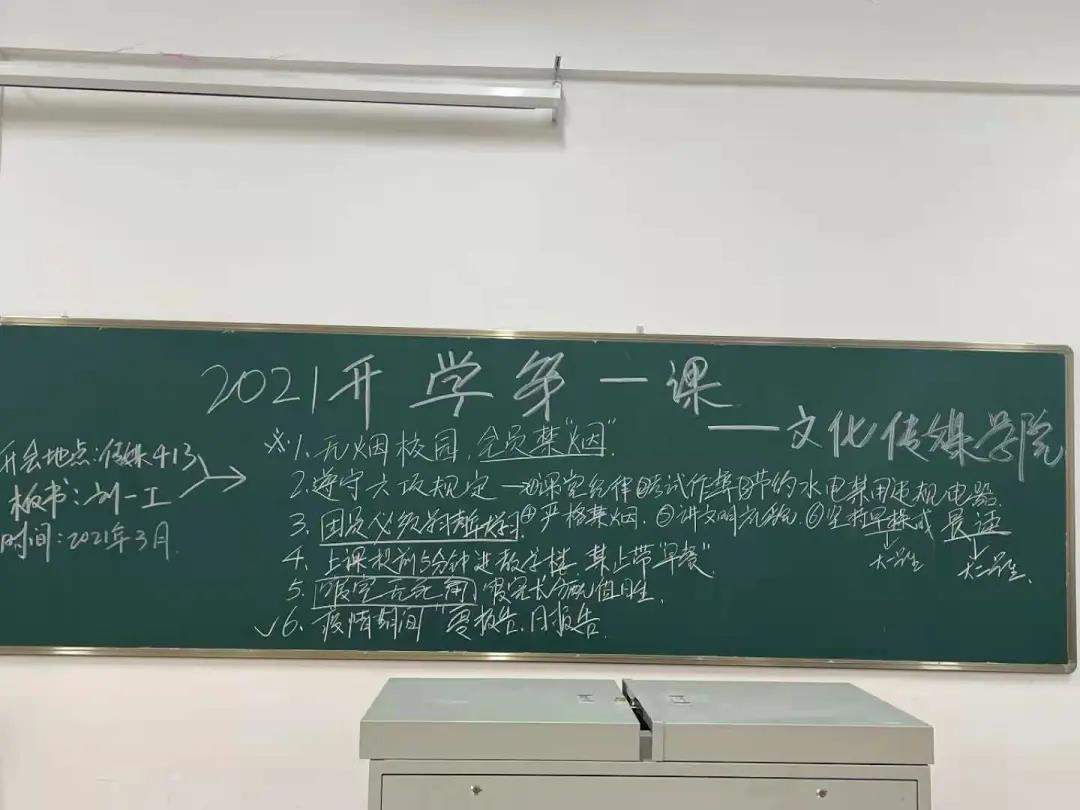 2021开学第一课
——文化传媒学院
开会地点:传媒413
板书:刘一工
时间:2021年3月.
※1.无烟校园,全员禁"烟".
2.遵守六项规定→①课堂纪律②考试作弊③节约水电禁用违规电器
3.团员必须学习青年大学习④严格禁烟.⑤讲文明礼貌.⑥坚持早操或晨读
大一学生 大二学生.
4.上课提前5分钟进教学楼.禁止带"早餐"
5.寝室无死角,寝室长分配值日生.
√6.疫情期间"零报告.日报告.